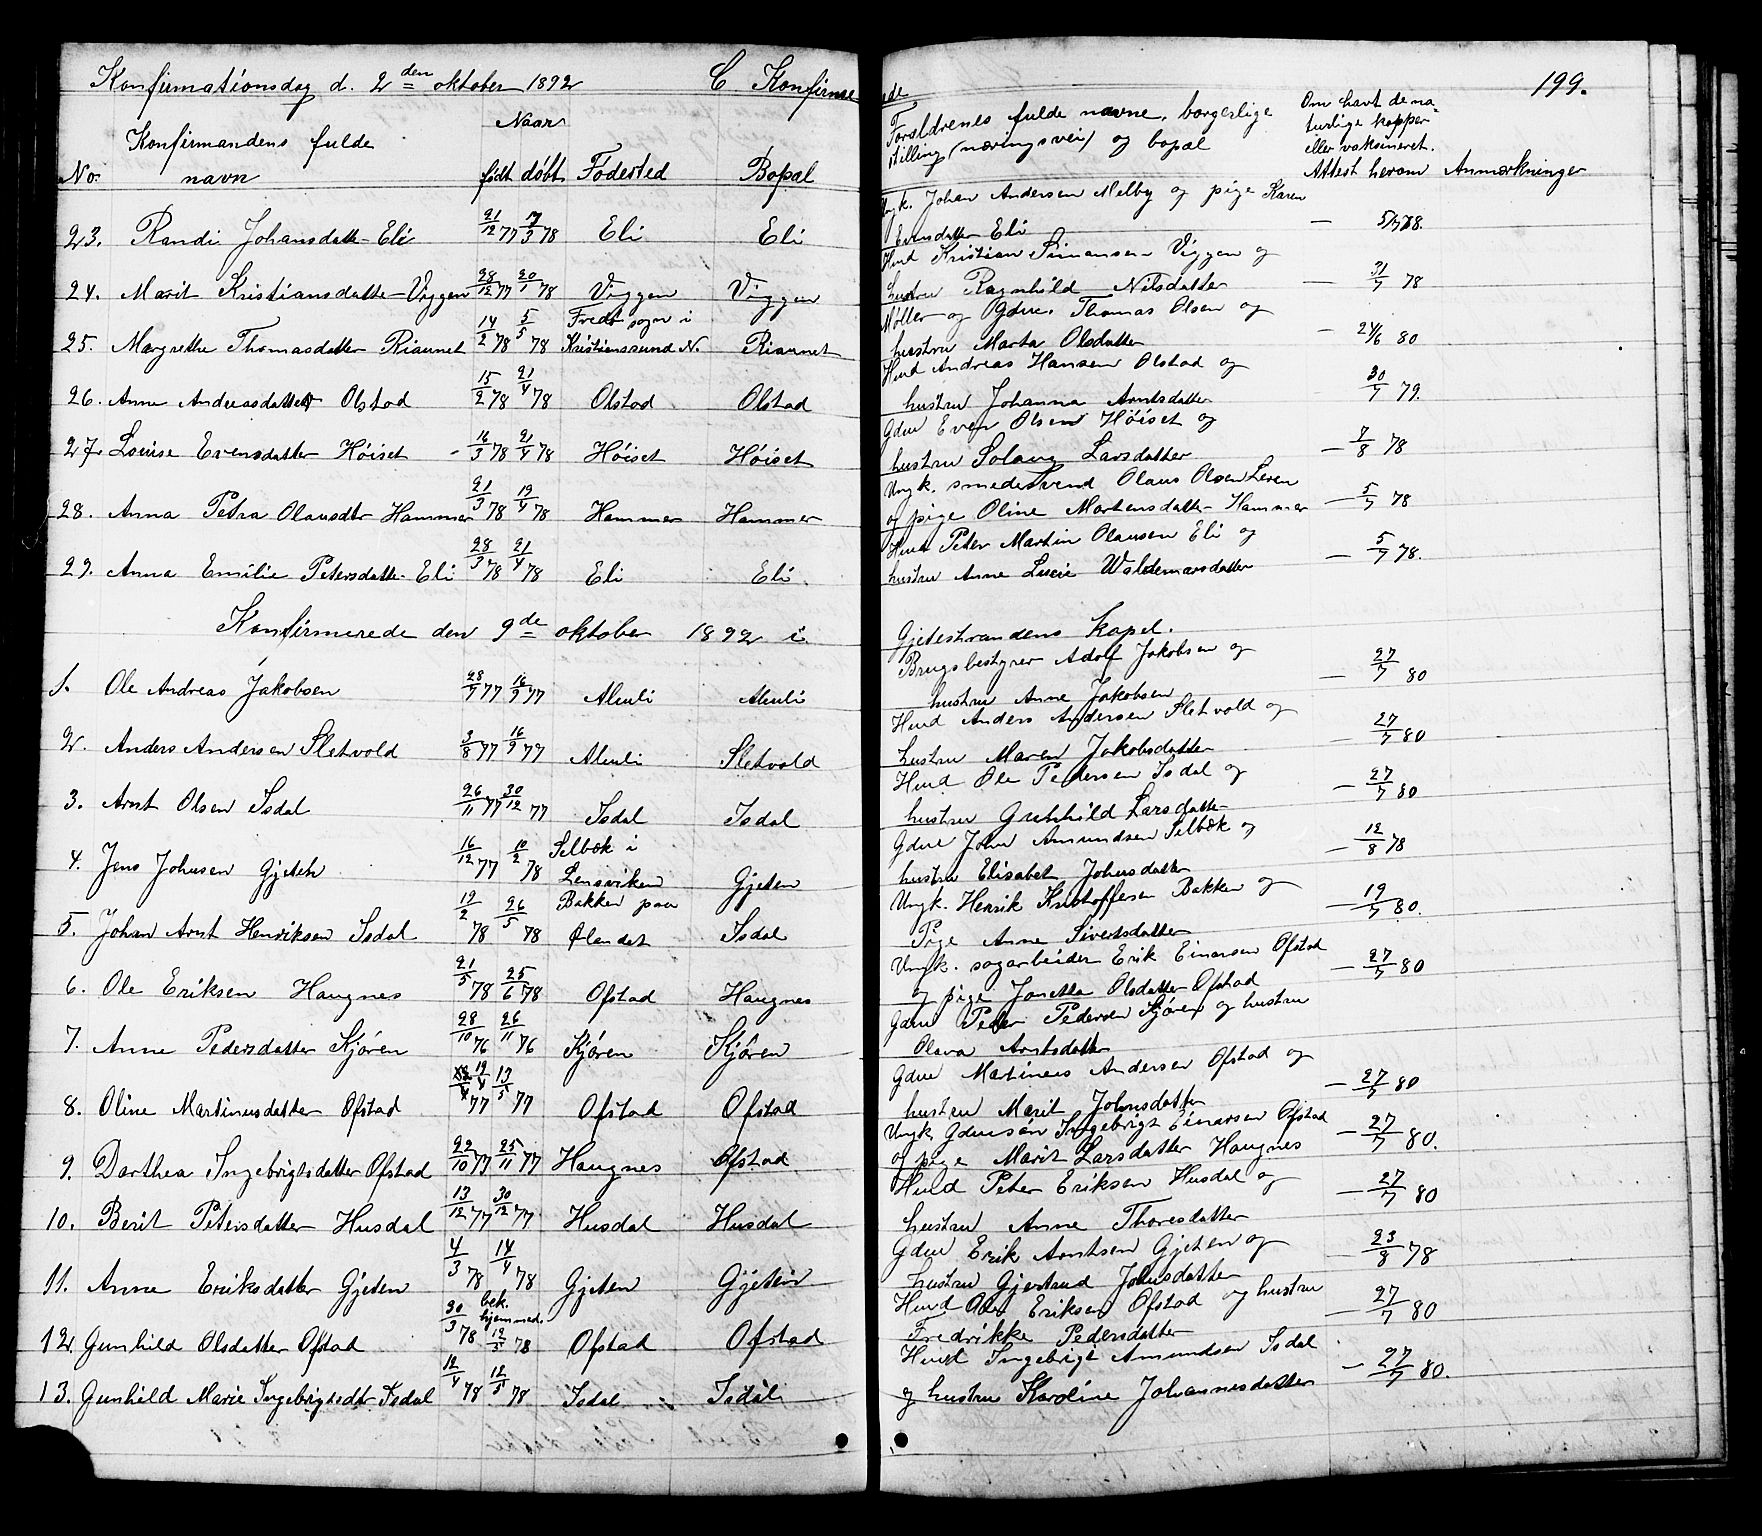 Konfirmationsdag d. 2den oktober 1892 C Konfirmerede 199.
No. Konfirmandens fulde navn Naar født døbt Fødested Bopæl Forældrenes fulde navne, borgerlige stilling (næringsvei) og bopæl Om havt de naturlige kopper eller vaksineret. Attest herom Anmærkninger
23. Randi Johansdatter Eli 21/12 77 17/3 78 Eli Eli Ungk. Johan Andersen Melby og pige Karen
Evensdatter Eli — 5/7 78.
24. Marit Kristiansdatter Viggen 28/12 77 20/1 78 Viggen Viggen Husd Kristian Simonsen Viggen og
hustru Ragnhild Nilsdatter — 31/7 78
25. Margrethe Thomasdatter Riaunet 14/2 78 5/5 78 Fredr sogn i Kristianssund N. Riaunet Møller og Gdbr. Thomas Olsen og
hustru Marta Olsdatter — 24/6 80
26. Anne Andreasdatter Olstad 15/2 78 21/4 78 Olstad Olstad Husd Andreas Hansen Olstad og
hustru Johanna Arntsdatter 30/7 79.
27. Louise Evensdatter Høiset 16/3 78 21/4 78 Høiset Høiset Gdbr Even Olsen Høiset og
hustru Solaug Larsdatter — 7/8 78
28. Anna Petra Olausdtr Hammer 21/3 78 19/4 78 Hammer Hammer Ungk. smedesvend Olaus Olsen Leren
og pige Oline Mortensdatter Hammer — 5/7 78
29. Anna Emilie Petersdatter Eli 28/3 78 21/4 78 Eli Eli. Husd Peter Martin Olausen Eli og
hustru Anne Lucie Waldemarsdatter — 5/7 78.
Konfirmerede den 9de oktober 1892 i Gjetestrandens kapel.
1. Ole Andreas Jakobsen 28/7 77 16/9 77 Aluli Aluli Brugsbestyrer Adolf Jakobsen og
hustru Anne Jakobsen — 27/7 80
2. Anders Andersen Sletvold 3/8 77 16/9 77 Aluli Sletvold Husd Anders Andersen Sletvold og
hustru Maren Jakobsdatter — 27/7 80
3. Arnt Olsen Isdal 26/11 77 30/12 77 Isdal Isdal Husd Ole Pedersen Isdal og
hustru Gunhild Larsdatter — 27/7 80
4. Jens Johnsen Gjeten 16/12 77 10/2 78 Selbæk i Lensviken Gjeten Gdbr John Amundsen Selbæk og
hustru Elisabet Johnsdatter — 12/8 78
5. Johan Arnt Henriksen Isdal 19/2 78 26/5 78 Bakken paa Ølandet Isdal Ungk. Henrik Kristoffersen Bakken og
Pige Anne Sivertsdatter — 19/7 80.
6. Ole Eriksen Haugnes 21/5 78 25/6 78 Ofstad Haugnes Ungk. sagarbeider Erik Einarsen Ofstad
og pige Jonetta Olsdatter Ofstad — 27/7 80
7. Anne Pedersdatter Kjøren 28/10 76 26/11 76 Kjøren Kjøren Gdbr Peder Pedersen Kjøren og hustru
Olava Arntsdatter
8. Oline Martinusdatter Ofstad 19/4 77 13/5 77 Ofstad Ofstad Gdbr Martinus Andersen Ofstad og
hustru Marit Johnsdatter — 27/7 80
9. Dorthea Ingebrigtsdatter Ofstad 22/10 77 25/11 77 Haugnes Ofstad Ungk. Gdmsøn Ingebrigt Einarsen Ofstad
og pige Marit Larsdatter Haugnes — 27/7 80.
10. Berit Petersdatter Husdal 13/12 77 30/12 77 Husdal Husdal Husd Peter Eriksen Husdal og
hustru Anne Thoresdatter — 27/7 80
11. Anne Eriksdatter Gjeten 4/3 78 14/4 78 Gjeten Gjeten Gdbr Erik Arntsen Gjeten og
hustru Gjertrud Johnsdatter — 23/8 78
12. Gunhild Olsdatter Ofstad 30/3 78 bek. hjemmed. 12/5 78 Ofstad Ofstad Husd Ole Eriksen Ofstad og hustru
Fredrikke Pedersdatter — 27/7 80
13. Gunhild Marie Ingebrigtsdtr Isdal 12/4 78 12/5 78 Isdal Isdal Husd Ingebrigt Amundsen Isdal
og hustru Karoline Johannesdatter — 27/7 80.